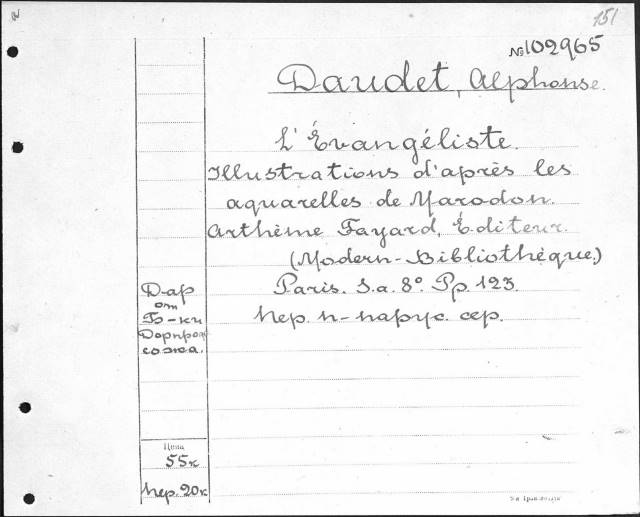 151
№102965
Daudet, Alphonse.
L'Évangéliste.
Illustrations d'après les
aquarelles de Marodon.
Arthème Fayard, Éditeur.
(Modern-Bibliothèque.)
Paris. S.a. 8º. Pp. 123.
Пер. п-парус. сер.
Дар
от
Б-ки
Дорпроф
сожа.
Цена
55к
Пер. 20к